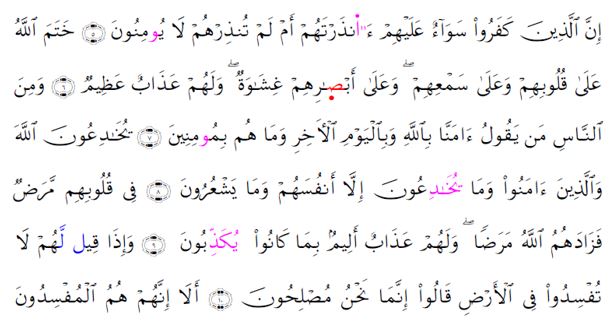 إِنَّ ٱلَّذِينَ كَفَرُوا۟ سَوَآءٌ عَلَيْهِمْ ءَا۬نذَرْتَهُمْ أَمْ لَمْ تُنذِرْهُمْ لَا يُومِنُونَ ۝٥ خَتَمَ ٱللَّهُ
عَلَىٰ قُلُوبِهِمْ وَعَلَىٰ سَمْعِهِمْ ۖ وَعَلَىٰ أَبْصَـٰرِهِمْ غِشَـٰوَةٌ ۖ وَلَهُمْ عَذَابٌ عَظِيمٌ ۝٦ وَمِنَ
ٱلنَّاسِ مَن يَقُولُ ءَامَنَّا بِٱللَّهِ وَبِٱلْيَوْمِ ٱلْأَخِرِ وَمَا هُم بِمُومِنِينَ ۝٧ يُخَـٰدِعُونَ ٱللَّهَ
وَٱلَّذِينَ ءَامَنُوا۟ وَمَا يُخَـٰدِعُونَ إِلَّا أَنفُسَهُمْ وَمَا يَشْعُرُونَ ۝٨ فِى قُلُوبِهِم مَّرَضٌ
فَزَادَهُمُ ٱللَّهُ مَرَضًا ۖ وَلَهُمْ عَذَابٌ أَلِيمٌۢ بِمَا كَانُوا۟ يُكَذِّبُونَ ۝٩ وَإِذَا قِيل لَّهُمْ لَا
تُفْسِدُوا۟ فِى ٱلْأَرْضِ قَالُوٓا۟ إِنَّمَا نَحْنُ مُصْلِحُونَ ۝١٠ أَلَا إِنَّهُمْ هُمُ ٱلْمُفْسِدُونَ